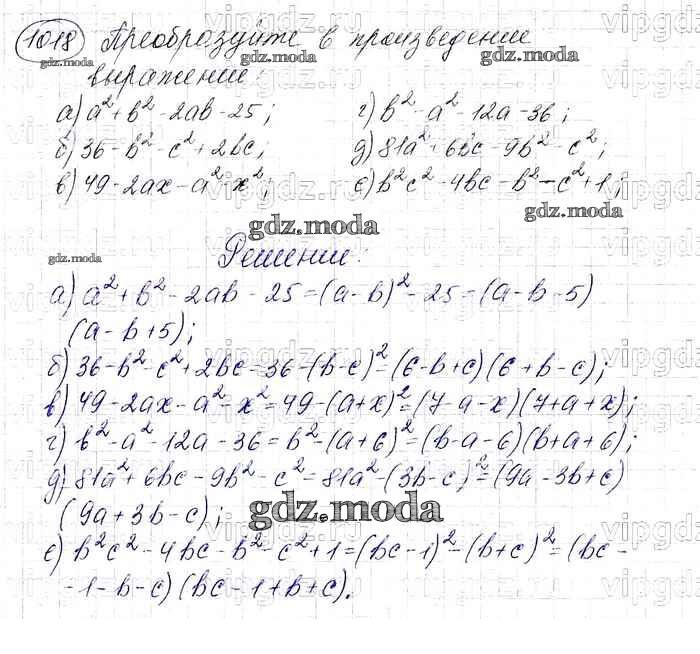 1018 Преобразуйте в произведение
выражение:
а) a² + b² - 2ab - 25; г) b² - a² - 12a - 36;
б) 36 - b² - c² + 2bc; д) 81a² + 6bc - 9b² - c²;
в) 49 - 2ax - a² - x²; е) b²c² - 4bc - b² - c² + 1;
Решение:
а) a² + b² - 2ab - 25 = (a - b)² - 25 = (a - b - 5)
(a - b + 5);
б) 36 - b² - c² + 2bc = 36 - (b - c)² = (6 - b + c)(6 + b - c);
в) 49 - 2ax - a² - x² = 49 - (a + x)² = (7 - a - x)(7 + a + x);
г) b² - a² - 12a - 36 = b² - (a + 6)² = (b - a - 6)(b + a + 6);
д) 81a² + 6bc - 9b² - c² = 81a² - (3b - c)² = (9a - 3b + c)
(9a + 3b - c);
е) b²c² - 4bc - b² - c² + 1 = (bc - 1)² - (b + c)² = (bc -
- 1 - b - c)(bc - 1 + b + c).
gdz.moda
vipgdz